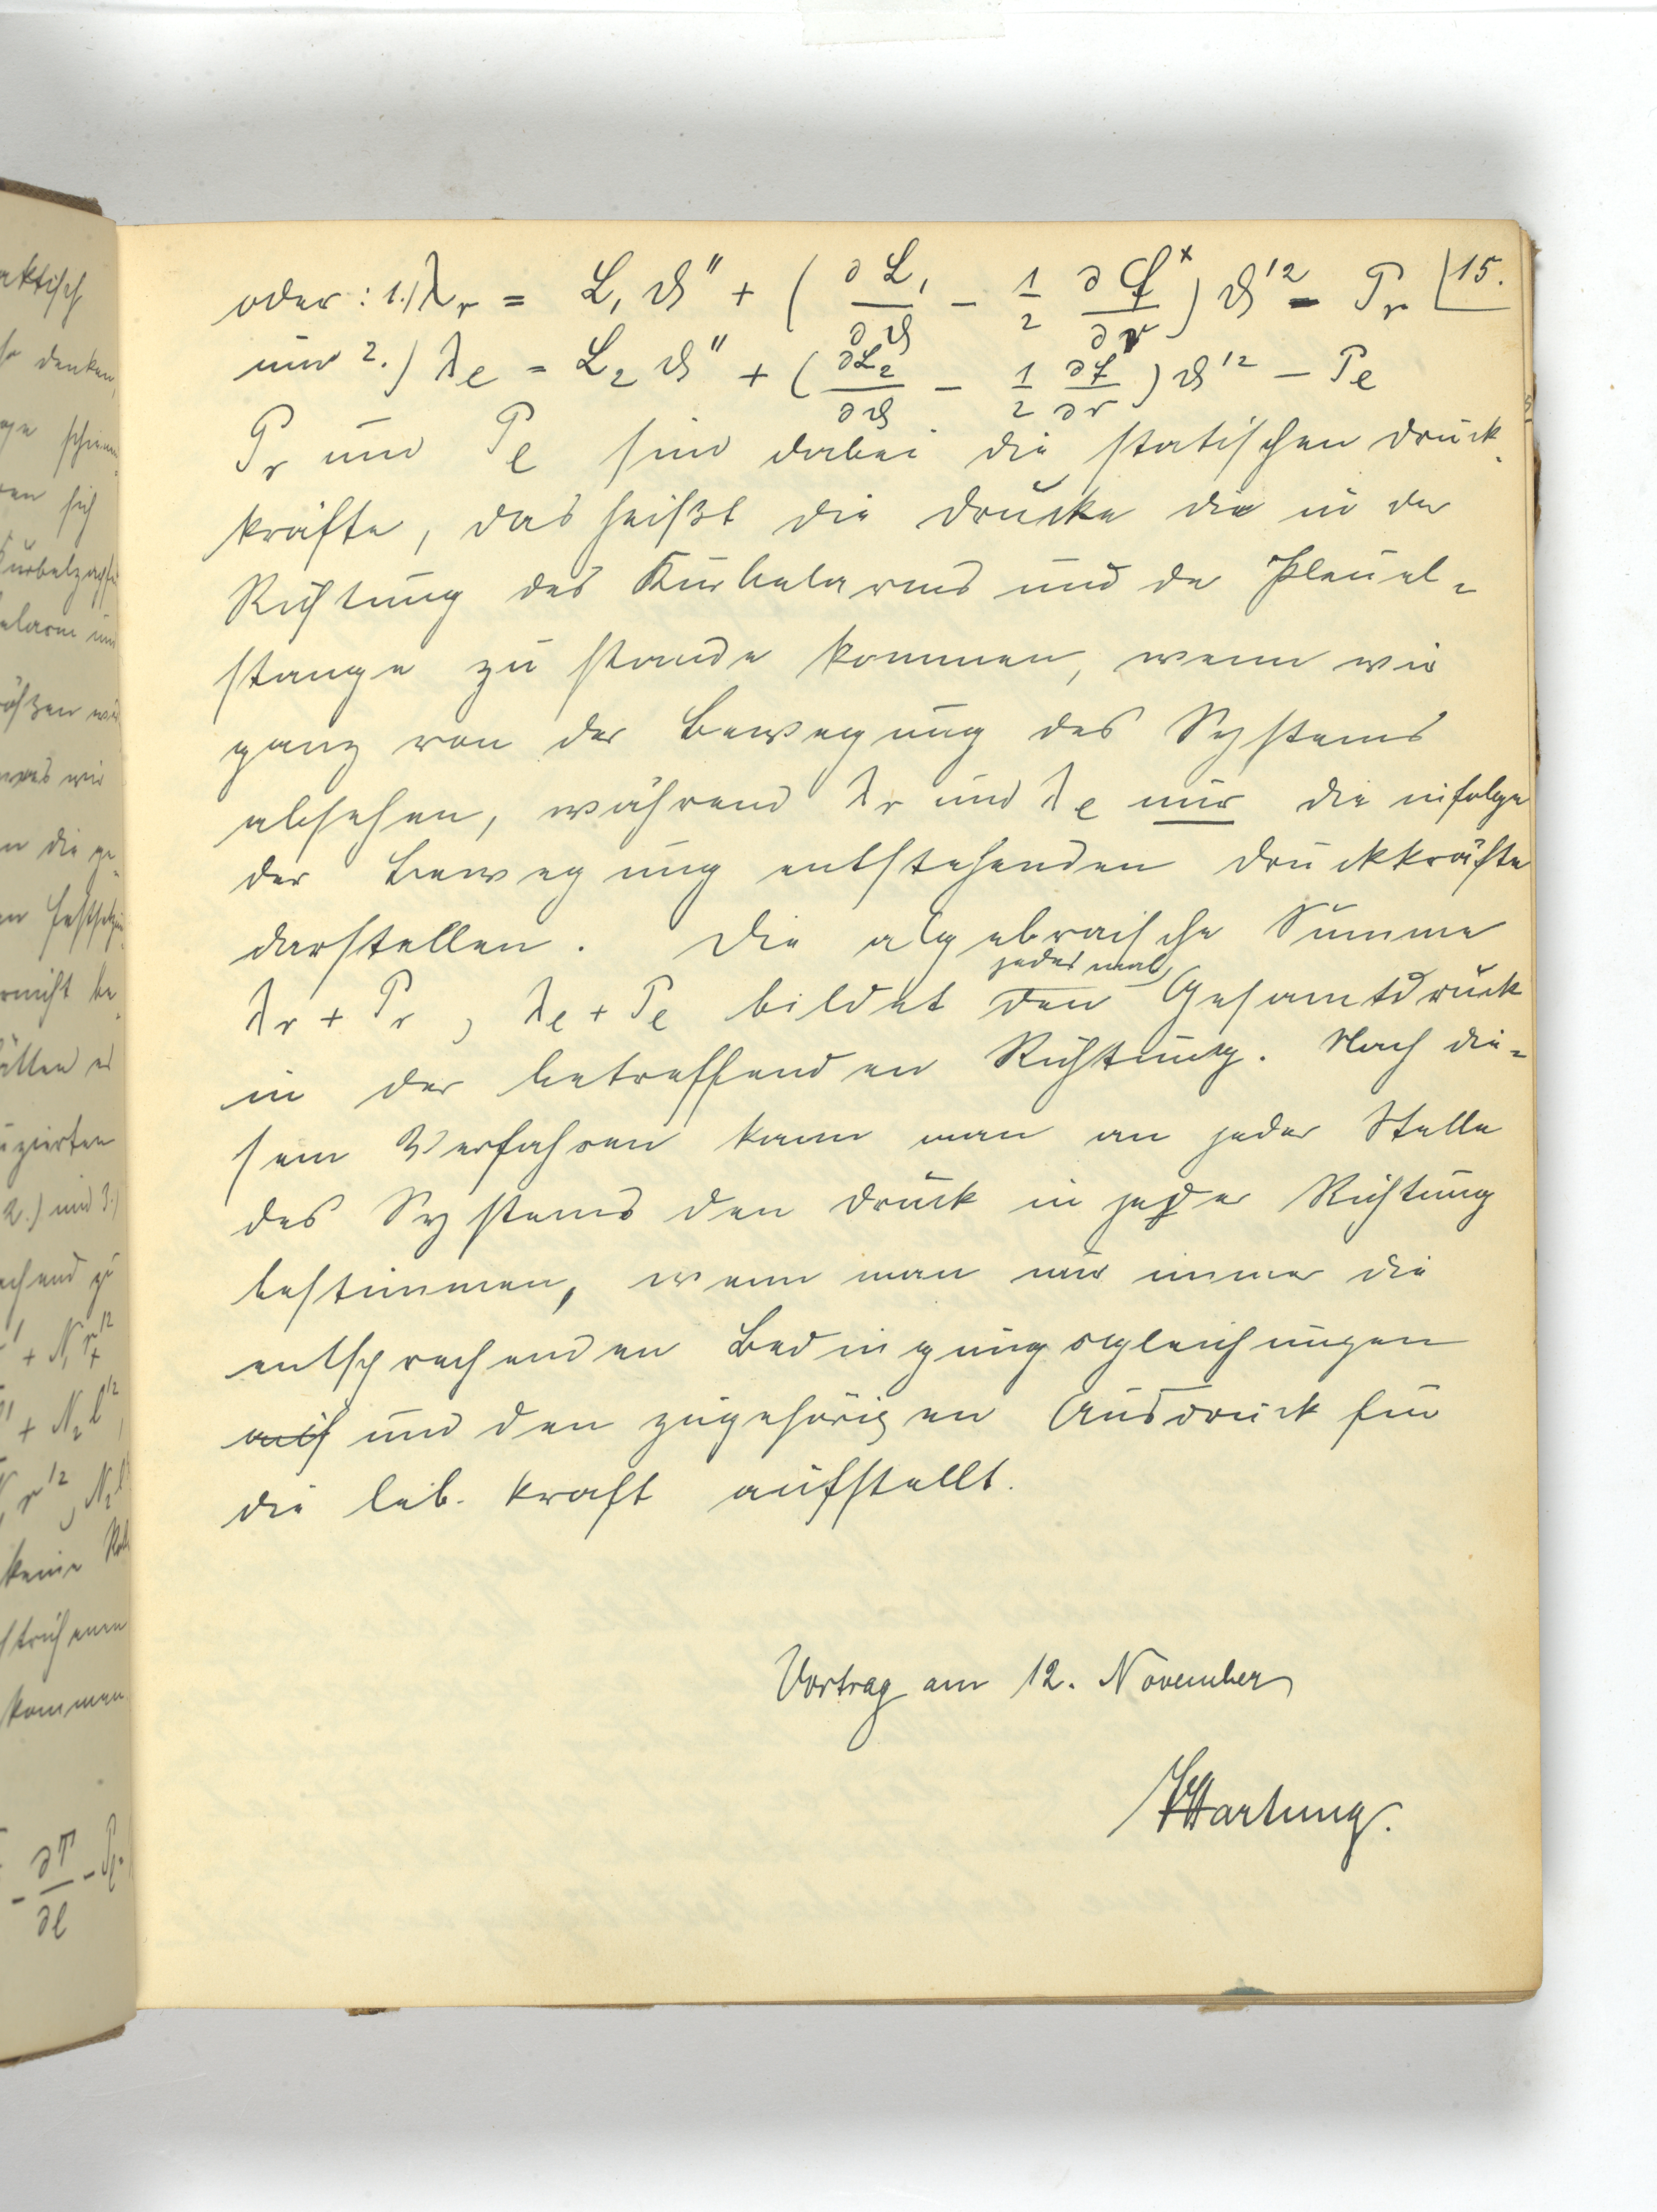 oder: 1.) λ_r = L_1 ϑ'' + ( ∂L_1/∂ϑ − 1/2 ∂L^x/∂r ) ϑ'^2 − P_r 15.
und 2.) λ_l = L_2 ϑ'' + ( ∂L_2/∂ϑ − 1/2 ∂L^x/∂r ) ϑ'^2 − P_l
P_r und P_l sind dabei die statischen Druck-
kräfte, das heißt die Drucke die in der
Richtung des Kurbelarms und der Pleuel=
stange zu stande kommen, wenn wir
ganz von der Bewegung des Systems
absehen, während λ_r und λ_l nur die infolge
der Bewegung entstehenden Druckkräfte
darstellen. Die algebraische Summe
jedesmal
λ_r + P_r , λ_l + P_l bildet den Gesamtdruck
in der betreffenden Richtung. Nach die=
sem Verfahren kann man an jeder Stelle
des Systems den Druck in jeder Richtung
bestimmen, wenn man nur immer die
entsprechenden Bedingungsgleichungen
auf und den zugehörigen Ausdruck für
die leb. Kraft aufstellt.
Vortrag am 12. November
Hartung.